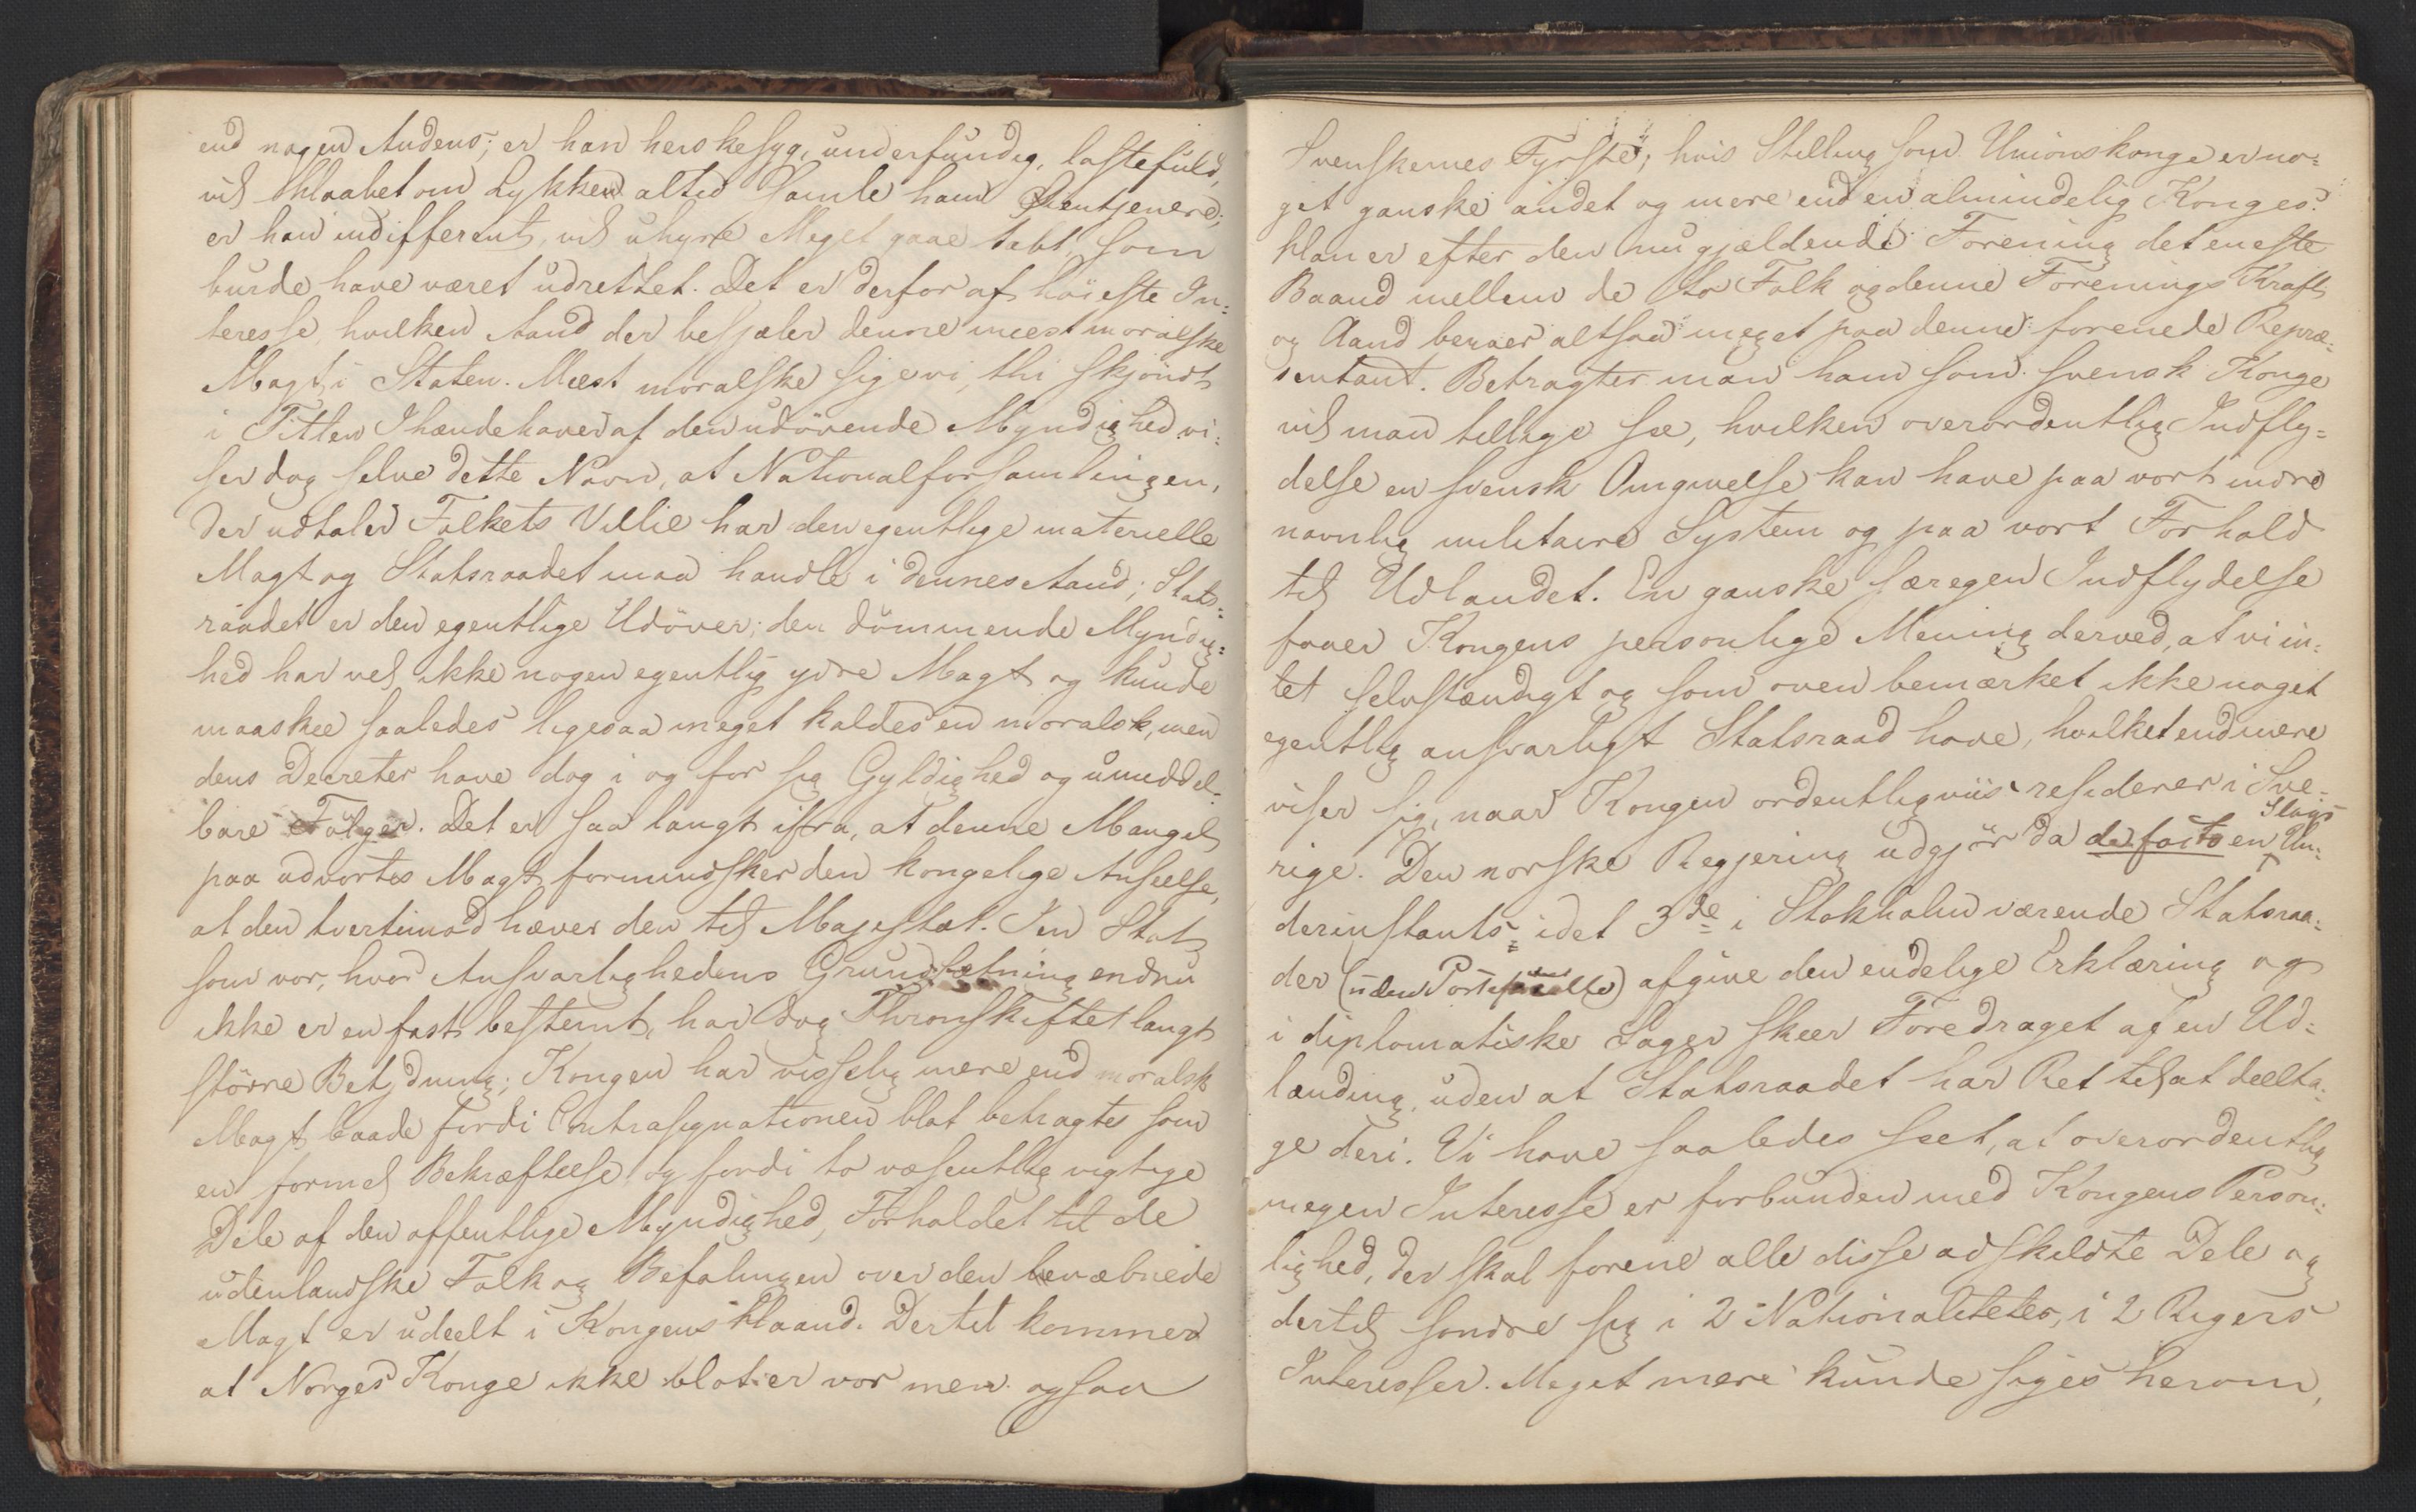 end nogen Andens; er han herskesyg, underfundig, lastefuld,
vil Haabet om Lykken altid samle ham Øientjenere;
er han indifferent, vil uhyre Meget gaae tabt, som
burde have været udrettet. Det er derfor af höieste In-
teresse, hvilken Aand der besjæler denne meest moralske
Magt i Staten. Meest moralske sige vi, thi skjöndt
i Titlen Ihændehaver af den udövende Myndighed, vi-
ser dog selve dette Navn, at Nationalforsamlingen,
der udtaler Folkets Villie har den egentlige materielle
Magt og Statsraadet maa handle i dennes Aand; Stats-
raadet er den egentlige Udöver; den dömmende Myndig-
hed har vel ikke nogen egentlig ydre Magt og kunde
maaskee saaledes ligesaa meget kaldes en moralsk, men
dens Decreter have dog i og for sig Gyldighed og umiddel-
bare Fölger. Det er saa langt ifra, at denne Mangel
paa udvortes Magt formindsker den kongelige Anseelse,
at den tvertimod hæver den til Majestæt. I en Stat
som vor, hvor Ansvarlighedens Grundsætning endnu
ikke er en fast bestemt, har dog Thronskiftet langt
större Betydning; Kongen har visselig mere end moralsk
Magt baade fordi Contrasignationen blot betragtes som
en formel Bekræftelse og fordi to væsentlig vigtige
Dele af den offentlige Myndighed, Forholdet til de
udenlandske Folk og Befalingen over den bevæbnede
Magt er udeelt i Kongens Haand. Dertil kommer
at Norges Konge ikke blot er vor men ogsaa
Svenskernes Fyrste; hvis Stilling som Unionskonge er no-
get ganske andet og mere end en almindelig Konges.
Han er efter den nu gjældende Forening det eneste
Baand mellem de to Folk og denne Forenings Kraft
og Aand beroer altsaa meget paa denne forenede Repræ-
sentant. Betragter man ham som svensk Konge
vil man tillige see, hvilken overordentlig Indfly-
delse en svensk Omgivelse kan have paa vort indre
navnlig militaire System og paa vort Forhold
til Udlandet. En ganske særegen Indflydelse
faaer Kongens personlige Mening derved, at vi in-
tet selvstændigt og som oven bemærket ikke noget
egentlig ansvarligt Statsraad have, hvilket end mere
viser sig, naar Kongen ordentligviis residerer i Sve-
rige. Den norske Regjering udgjör da de facto en Slags Un-
derinstants idet 3de i Stokholm værende Statsraa-
der (uden Portefeuille) afgive den endelige Erklæring og
i diplomatiske Sager skeer Foredraget af en Ud-
lænding, uden at Statsraadet har Ret til at deelta-
ge deri. Vi have saaledes seet, at overordentlig
megen Interesse er forbunden med Kongens Person-
lighed, der skal forene alle disse adskildte Dele og
dertil sondre sig i 2 Nationaliteter, i 2 Rigers
Interesser. Meget mere kunde siges herom,